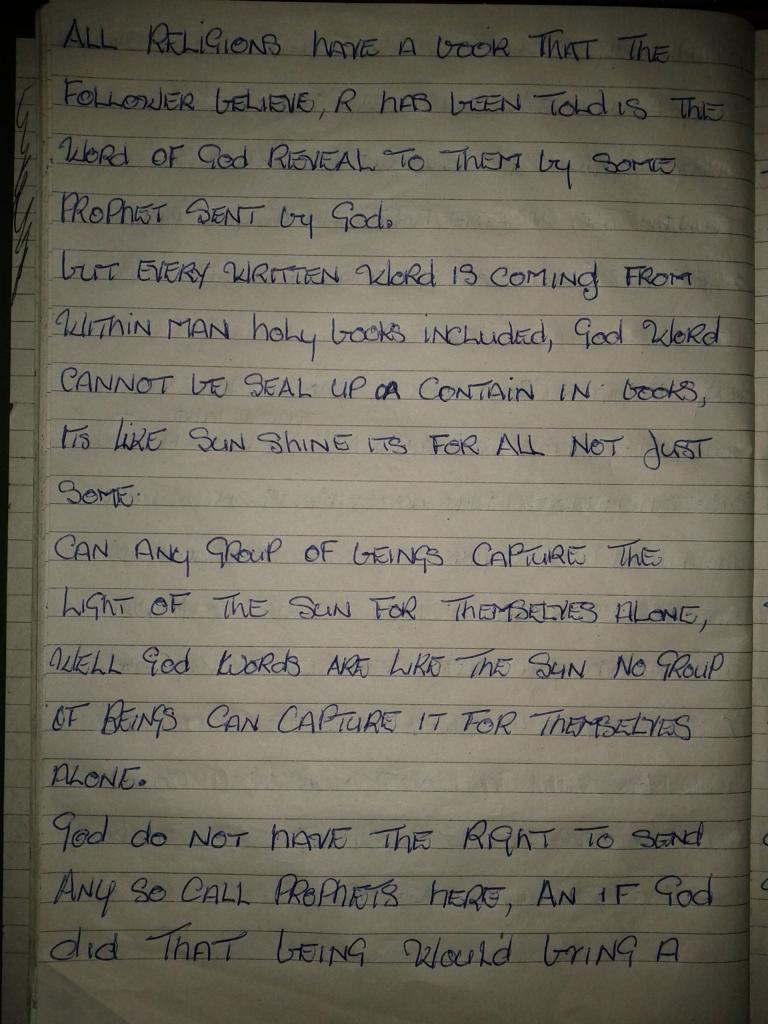 ALL RELIGIONS HAVE A BOOK THAT THE
FOLLOWER BELIEVE, R HAS BEEN TOLD IS THE
WORD OF GOD REVEAL TO THEM by SOME
PROPHET SENT by God.
bUT EVERY WRITTEN WORD IS COMING FROM
WITHIN MAN holy books INCLUDED, God WORD
CANNOT bE SEAL UP OR CONTAIN IN books,
ITS LIKE SUN SHINE ITS FOR ALL NOT JUST
SOME.
CAN ANy GROUP OF bEINGS CAPTURE THE
LIGHT OF THE SUN FOR THEMSELVES ALONE,
WELL God WORDS ARE LIKE THE SUN NO GROUP
OF BEINGS CAN CAPTURE IT FOR THEMSELVES
ALONE.
God do NOT HAVE THE RIGHT TO SEND
ANY SO CALL PROPHETS HERE, AN IF God
did THAT bEING WOULD bRING A